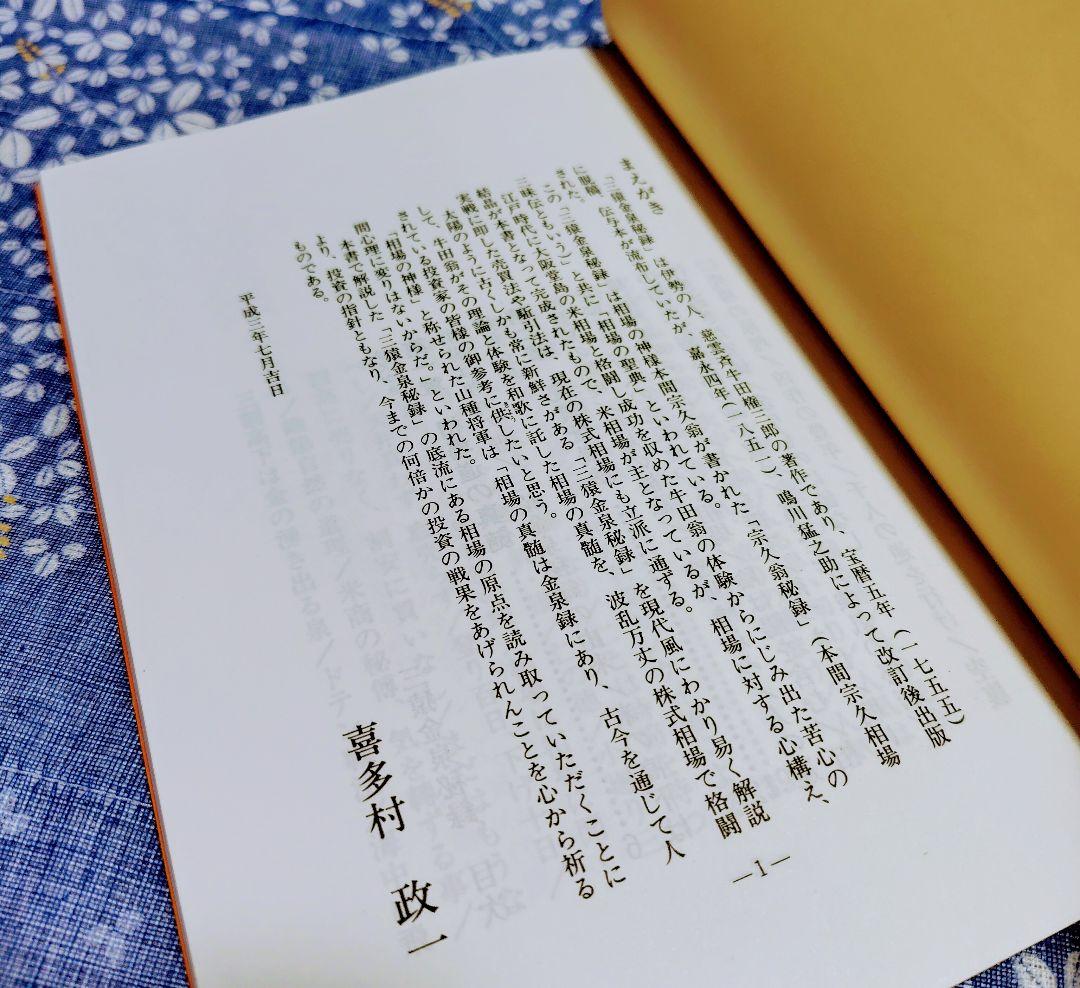 まえがき
「三猿金泉秘録」は伊勢の人、慈雲斉牛田権三郎の著作であり、宝暦五年(一七五五)
に脱稿、伝写本が流布していたが、嘉永四年(一八五一)、鳴川猛之助によって改訂後出版
された。
この「三猿金泉秘録」は相場の神様本間宗久翁が書かれた「宗久翁秘録」(本間宗久相場
三昧伝ともいう)と共に「相場の聖典」といわれている。
江戸時代に大阪堂島の米相場と格闘し成功を収めた牛田翁の体験からにじみ出た苦心の
結晶が本書となって完成されたもので、米相場が主となっているが、相場に対する心構え、
実戦に即した売買法や駈引法は、現在の株式相場にも立派に通ずる。
太陽のように古くしかも常に新鮮さがある「三猿金泉秘録」を現代風にわかり易く解説
して、牛田翁がその理論と体験を和歌に託した相場の真髄を、波乱万丈の株式相場で格闘
されている投資家の皆様の御参考に供したいと思う。
「相場の神様」と称せられた山種将軍は「相場の真髄は金泉録にあり、古今を通じて人
間心理に変りはないからだ。」といわれた。
本書で解説した「三猿金泉秘録」の底流にある相場の原点を読み取っていただくことに
より、投資の指針ともなり、今までの何倍かの投資の戦果をあげられんことを心から祈る
ものである。
平成三年七月吉日
喜多村 政一
—1—